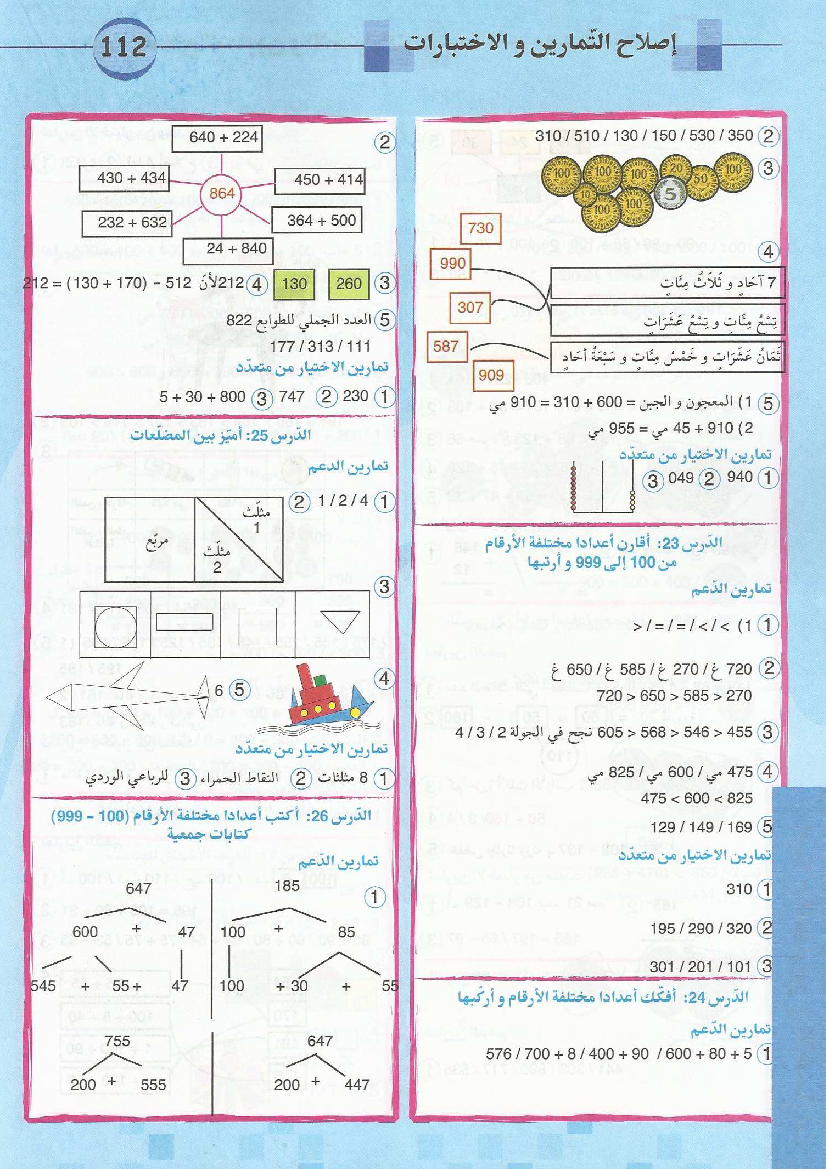 112
إصلاح التّمارين و الاختبارات
② 350 / 530 / 150 / 130 / 510 / 310
③
100 100 100 20 50 100
10 100 100 5
④
730
990
307
587
909
7 آحَادٍ و ثَلَاثُ مِئَاتٍ
تِسْعُ مِئَاتٍ و تِسْعُ عَشَرَاتٍ
ثَمَانُ عَشَرَاتٍ و خَمْسُ مِئَاتٍ و سَبْعَةُ آحَادٍ
⑤ 1) المعجون و الجبن = 600 + 310 = 910 مي
2) 910 + 45 مي = 955 مي
تمارين الاختيار من متعدّد
① 940 ② 049 ③
الدّرس 23: أقارن أعدادا مختلفة الأرقام
من 100 إلى 999 و أرتبها
تمارين الدّعم
① 1) > / < / = / = / >
② 720 غ / 270 غ / 585 غ / 650 غ
720 > 650 > 585 > 270
③ 455 < 546 < 568 < 605 نجح في الجولة 2 / 3 / 4
④ 475 مي / 600 مي / 825 مي
475 < 600 < 825
⑤ 169 / 149 / 129
تمارين الاختيار من متعدّد
① 310
② 320 / 290 / 195
③ 101 / 201 / 301
الدّرس 24: أفكّك أعدادا مختلفة الأرقام و أركّبها
تمارين الدّعم
① 576 / 700 + 8 / 400 + 90 / 600 + 80 + 5
②
640 + 224
430 + 434
450 + 414
864
232 + 632
364 + 500
24 + 840
③ 260 130 ④ 212 لأنّ 512 − (170 + 130) = 212
⑤ العدد الجملي للطوابع 822
111 / 313 / 177
تمارين الاختيار من متعدّد
① 230 ② 747 ③ 800 + 30 + 5
الدّرس 25: أميّز بين المضلّعات
تمارين الدعم
① 4 / 2 / 1 ②
مثلّث 1
مثلّث 2
مربّع
③
④
⑤ 6
تمارين الاختيار من متعدّد
① 8 مثلثات ② النقاط الحمراء ③ للرباعي الوردي
الدّرس 26: أكتب أعدادا مختلفة الأرقام (100 – 999)
كتابات جمعية
تمارين الدّعم
①
647 185
600 + 47 100 + 85
545 + 55 + 47 100 + 30 + 55
755 647
200 + 555 200 + 447